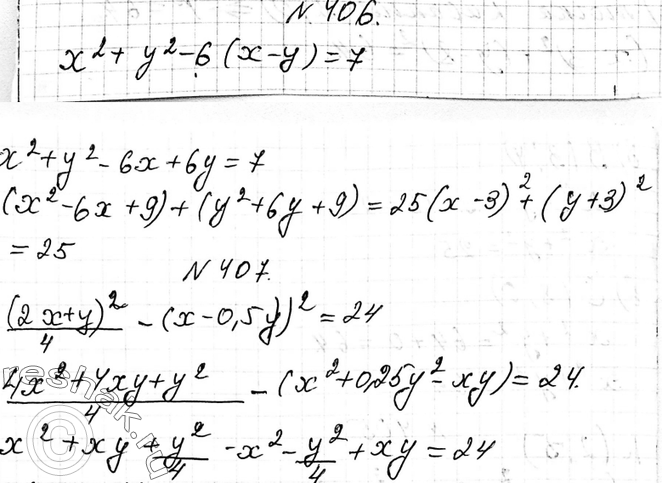 N 406.
x² + y² - 6 (x - y) = 7
x² + y² - 6x + 6y = 7
(x² - 6x + 9) + (y² + 6y + 9) = 25 (x - 3)² + (y + 3)²
= 25
N 407.
(2x + y)²/4 - (x - 0,5y)² = 24
(4x² + 4xy + y²)/4 - (x² + 0,25y² - xy) = 24.
x² + xy + y²/4 - x² - y²/4 + xy = 24
reshak.ru